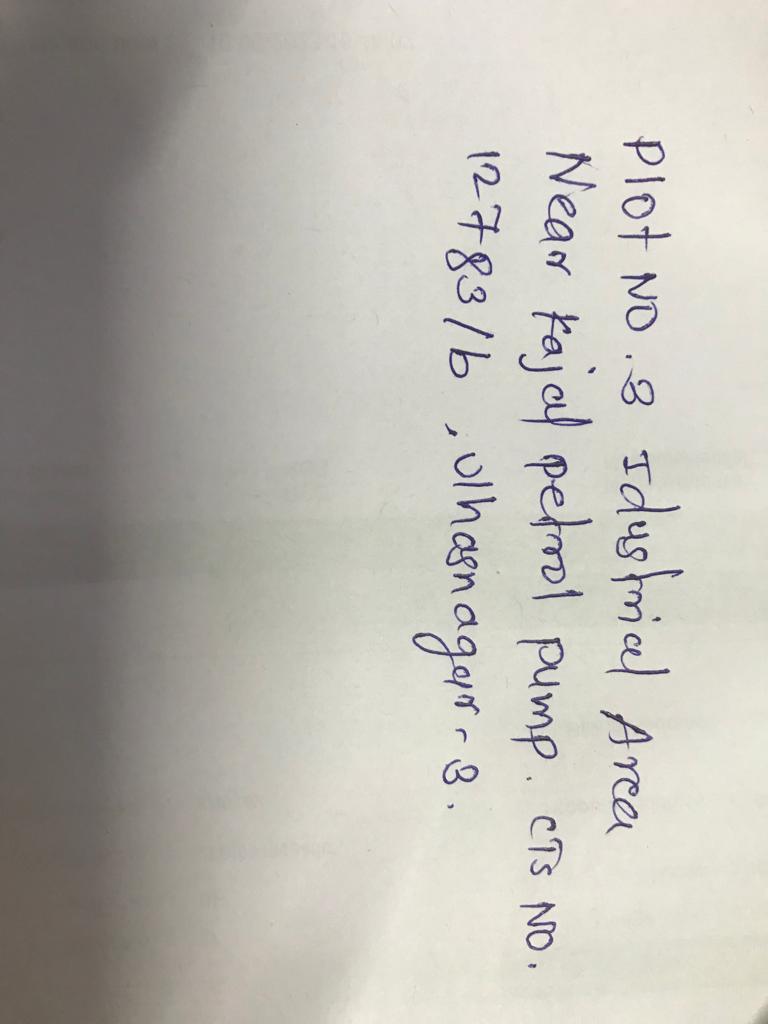 Plot NO. 3 Idustrial Area
Near kajal petrol pump. CTS NO.
12783/b, Ulhasnagar-3.